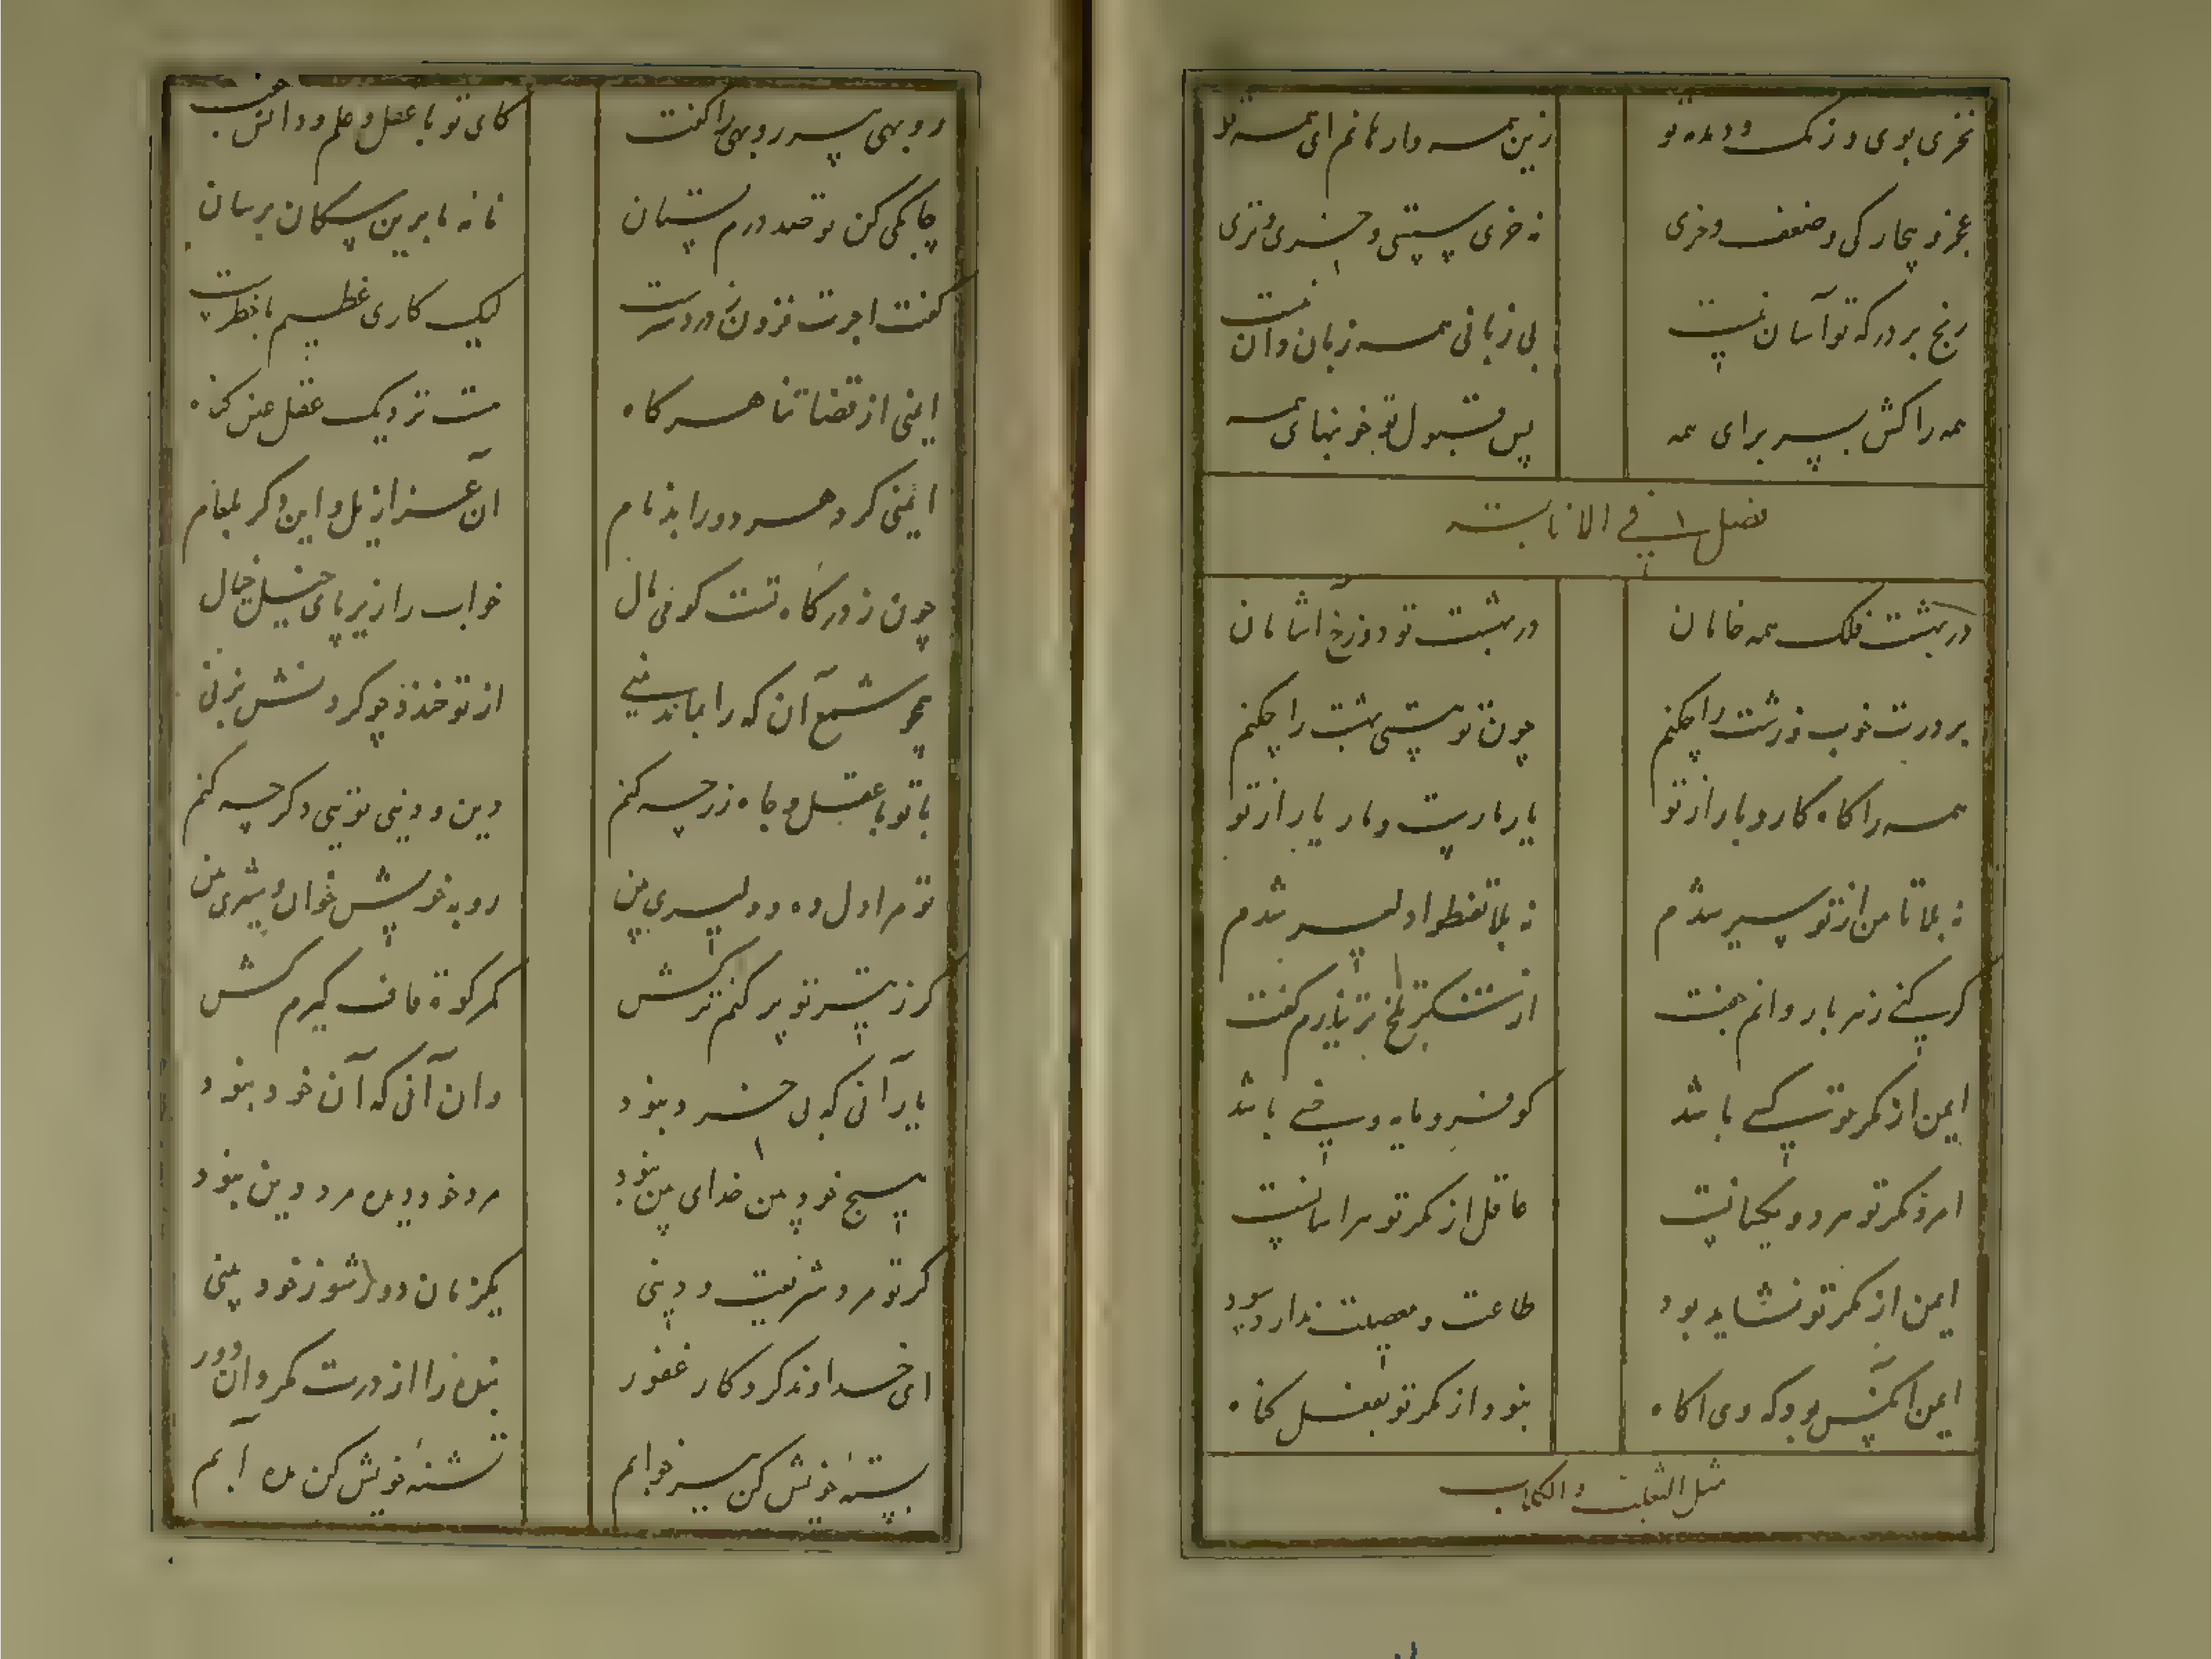 نخری بوی و رنگ و دمدمه تو	زین همه وارهانم ای همه تو
عجز و بیچارگی و ضعف و خری	نه خری سستی و خسری و تری
رنج بر درگه تو آسان نیست	بی زبانی همه زبان دان نیست
همه را کش بسر برای همه	پس قبول تو خونبهای همه
فصل فی الانابة
در بهشت فلک همه خامان	در بهشت تو دوزخ آشامان
بر درت خوب و زشت را چکنم	چون تو هستی بهشت را چکنم
همه را گاه کار و بار از تو	یار مارست و مار یار از تو
نه بلا تا من از تو سیر شدم	نه بلا تقنطوا دلیر شدم
گر کنی زهر با روانم جفت	از شکر تلخ تر نیارم گفت
ایمن از مکر تو کسی باشد	کو فرومایه و خسی باشد
امن و مکر تو هر دو یکسانست	عاقل از مکر تو هراسانست
ایمن از مکر تو نشاید بود	طاعت و معصیت ندارد سود
ایمن آنکس بود که وی آگاه	نبود از مکر تو بفعل گناه
مثل الثعلب و الکلاب
روبهی پیر روبهی را گفت	کای تو با عقل و علم و دانش جفت
چابکی کن دو صد درم بستان	نامه ما برین سگان برسان
گفت اجرت فزون ز دردسرست	لیک کاری عظیم با خطرست
ایمنی از قضات ناهرگاه	هست نزدیک عقل عین گناه
ایمنی کرد هر دو را بدنام	آن عزازیل و این دگر بلعام
چون ز درگاه تست گو می مال	خواب را زیر پای خیل خیال
همچو شمع آن که را نماند منی	از تو خندد چو گردنش بزنی
با تو با عقل و جاه زر چه کنم	دین و دنیی تویی دگر چه کنم
تو مرا دل ده و دلیری بین	روبه خویش خوان و شیری بین
گر ز تیر تو پر کنم ترکش	کمر کوه قاف گیرم کش
یار آنی که بی خرد نبود	وان آنی که آن خود نبود
هیچ خودبین خدای بین نبود	مرد خود دیده مرد دین نبود
گر تو مرد شریعت و دینی	یکزمان دور شو ز خود بینی
ای خداوند کردگار غفور	بنده را از درت مگردان دور
بسته خویش کن ببر خوابم	تشنه خویش کن مده آبم